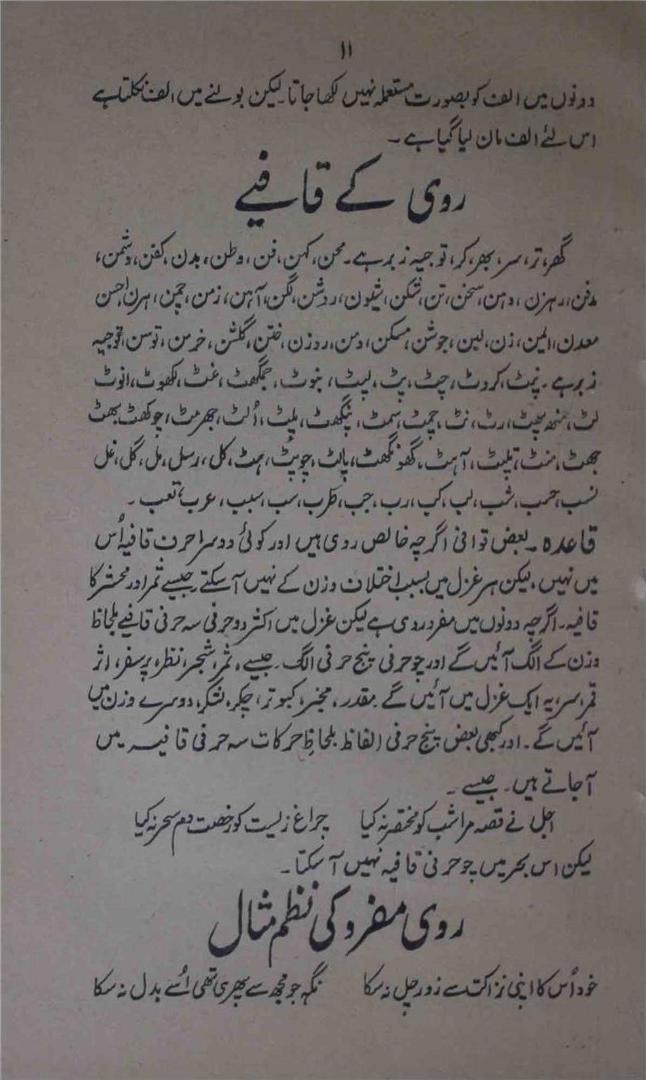 ۱۱
دونوں میں الف کو بصورت مستعملہ نہیں لکھا جاتا۔ لیکن بولنے میں الف نکلتا ہے
اس لئے الف مان لیا گیا ہے۔
روی کے قافیے
گھر، تر، سر، بھر، کر، توجیہ زبر ہے۔ محن، کہن، فن، وطن، بدن، کفن، دشمن،
مدفن، رہزن، دہن، سخن، تن، شکن، شیون، روشن، لگن، آہن، زمن، چمن، ہرن، احسن
معدن، ایمن، زن، لین، جوشن، مسکن، دمن، روزن، ختن، گلشن، خرمن، توسن، توجیہ
زبر ہے۔ نپٹ، کروٹ، چٹ، پٹ، لپٹ، بنوٹ، جمگھٹ، غٹ، لکھوٹ، انوٹ
لٹ، منھ پھٹ، رٹ، نٹ، چمٹ، سمٹ، پنگھٹ، پلیٹ، اُلٹ، جھرمٹ، چوکھٹ، بھٹ
جھٹ، منٹ، تلپٹ، آہٹ، گھونگھٹ، پاٹ، چوپٹ، ہٹ، کل، رسل، مل، گل، غل
نسب، حسب، شب، لب، کب، رب، جب، طرب، سب، سبب، عرب، تعب۔
قاعدہ۔ بعض قوافی اگرچہ خالص روی ہیں اور کوئی دوسرا حرف قافیہ اُس
میں نہیں، لیکن ہر غزل میں بسبب اختلاف وزن کے نہیں آ سکتے جیسے ثمر اور محشر کا
قافیہ۔ اگرچہ دونوں میں مفرد روی ہے لیکن غزل میں اکثر دو حرفی سہ حرفی قافیے بلحاظ
وزن کے الگ آئیں گے اور چو حرفی پنج حرفی الگ۔ جیسے، ثمر، شجر، نظر، پر، سفر، اثر
قمر، سر، یہ ایک غزل میں آئیں گے۔ مقدر، مخبر، کبوتر، چکر، لشکر، دوسرے وزن میں
آئیں گے۔ اور کبھی بعض پنج حرفی الفاظ بلحاظِ حرکات سہ حرفی قافیہ میں
آ جاتے ہیں۔ جیسے۔
اجل نے قصہ مرا شب کو مختصر نہ کیا چراغ زیست کو رخصت دم سحر نہ کیا
لیکن اس بحر میں چو حرفی قافیہ نہیں آ سکتا۔
روی مفرد کی نظم مثال
خود اُس کا اپنی نزاکت سے زور چل نہ سکا نگہ جو مجھ سے پھری تھی اُسے بدل نہ سکا